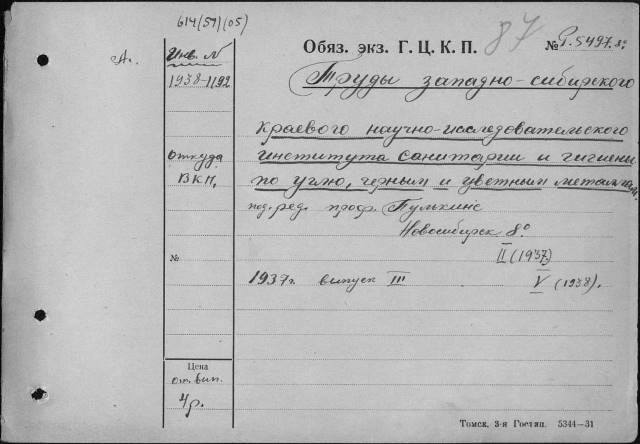 614(57)(05)
А.
Инв. N
1938-1192
Обяз. экз. Г. Ц. К. П.
87
№ Р.5497.8°
Труды западно-сибирского
краевого научно-исследовательского
института санитарии и гигиены
по углю, черным и цветным металлам.
под. ред. проф. Пулькис
Новосибирск 8°.
откуда
ВКП,
II (1937)
№
1937г. выпуск III
V (1938).
Цена
от. вып.
4р.
Томск, 3-я Гостип. 5344—31